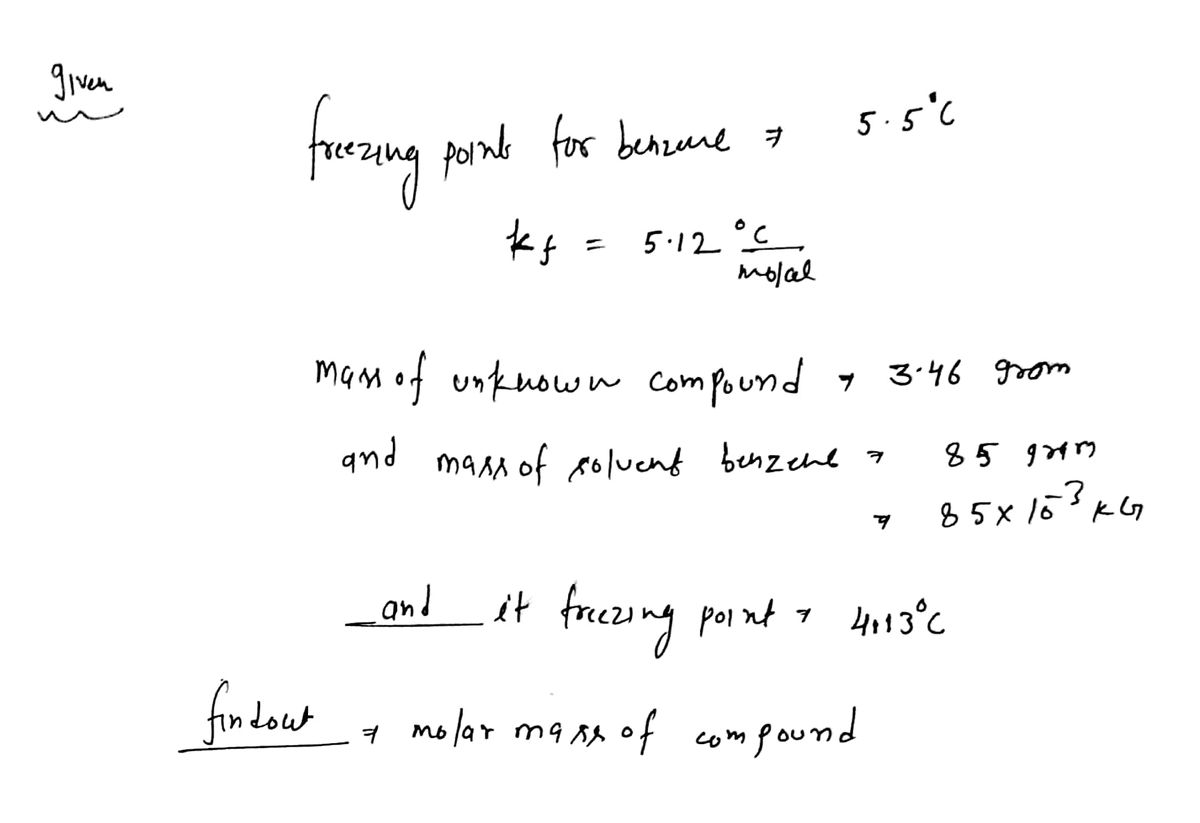 given
freezing points for benzene ⇒ 5.5°C
kf = 5.12 °C/molal
mass of unknown compound ⇒ 3.46 grom
and mass of solvent benzene ⇒ 85 gram
⇒ 85 x 10^-3 KG
and it freezing point ⇒ 4.13°C
findout ⇒ molar mass of compound